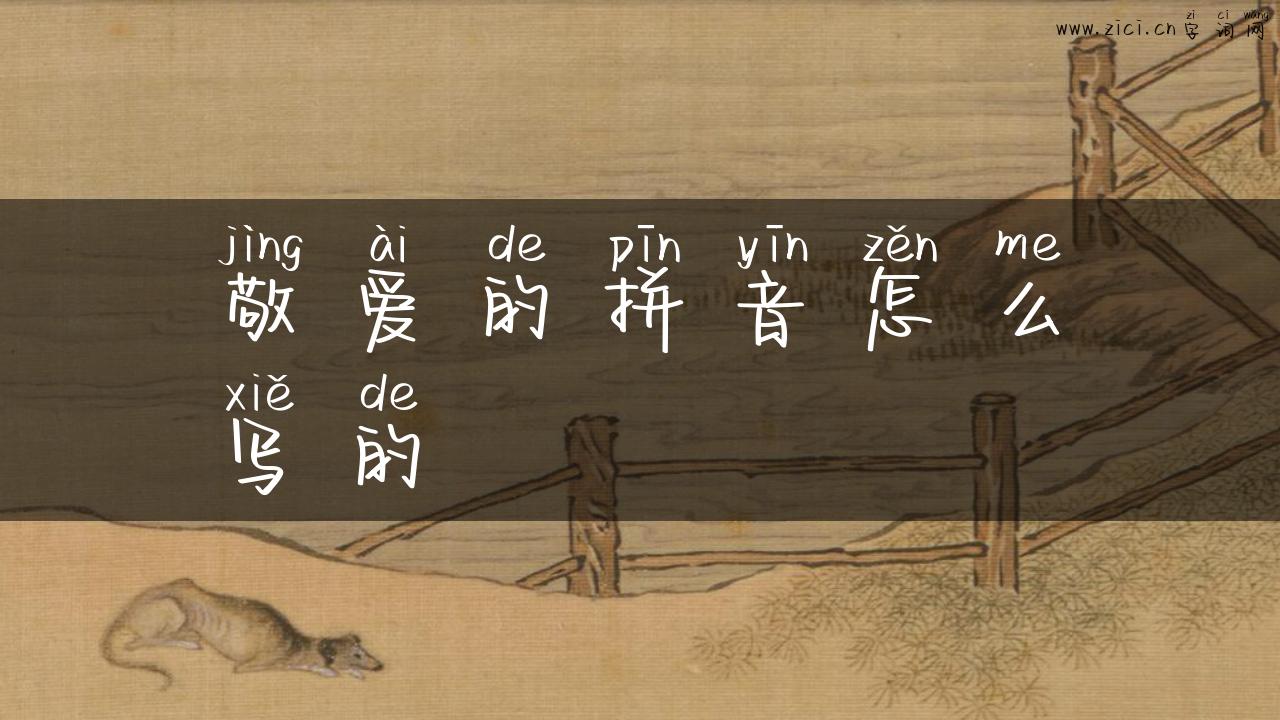 zi ci wang
www.zici.cn 字词网
jìng ài de pīn yīn zěn me
敬爱的拼音怎么
xiě de
写的